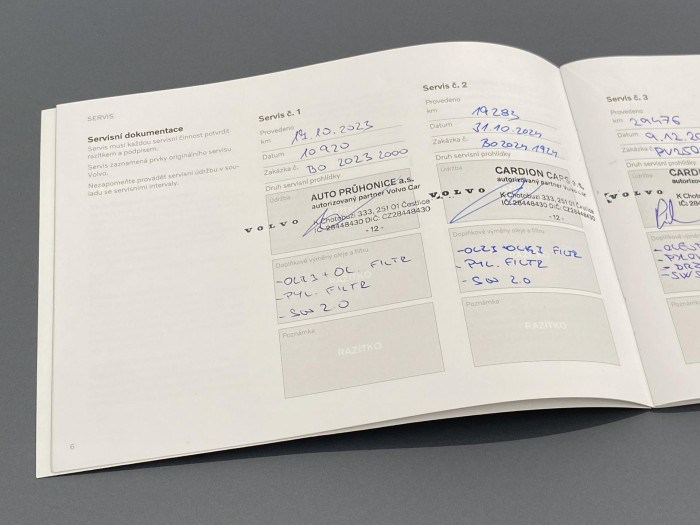 SERVIS
Servisní dokumentace
Servis musí každou servisní činnost potvrdit
razítkem a podpisem.
Servis zaznamená prvky originálního servisu
Volvo.
Nezapomeňte provádět servisní údržbu v sou-
ladu se servisními intervaly.
6
Servis č. 1
Provedeno
km 19.10.2023
Datum 10920
Zakázka č. BO 2023 2000
Druh servisní prohlídky
Údržba
AUTO PRŮHONICE a.s.
autorizovaný partner Volvo Car
VOLVO
K Chotobuzi 333, 251 01 Čestlice
IČ:28448430 DIČ: CZ28448430
- 12 -
Doplňkové výměny oleje a filtru
- OLEJ + OL. FILTR
- PYL. FILTR
- SW 2.0
Poznámka
RAZÍTKO
Servis č. 2
Provedeno
km 19283
Datum 31.10.2024
Zakázka č. BO2024 1924
Druh servisní prohlídky
Údržba
CARDION CARS a.s.
autorizovaný partner Volvo Car
VOLVO
K Chotobuzi 333, 251 01 Čestlice
IČ:28448430 DIČ: CZ28448430
- 12 -
Doplňkové výměny oleje a filtru
- OLEJ + OLEJ. FILTR
- PYL. FILTR
- SW 2.0
Poznámka
RAZÍTKO
Servis č. 3
Provedeno
km 29476
Datum 9.12.20
Zakázka č. PV250
Druh servisní
Údržba
CAR
autorizova
VOLVO
K Chotob
IČ:2844
Doplňkové
Poznámka